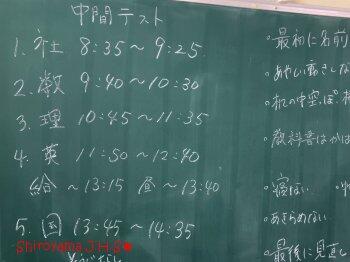 中間テスト
1. 社 8:35～9:25
2. 数 9:40～10:30
3. 理 10:45～11:35
4. 英 11:50～12:40
給 ～13:15 昼 ～13:40
5. 国 13:45～14:35
Shiroyama J.H.S
・最初に名前
・あやしい動きしな
・机の中空っぽ、
・教科書はかば
・寝ない
・あきらめない
・最後に見直し